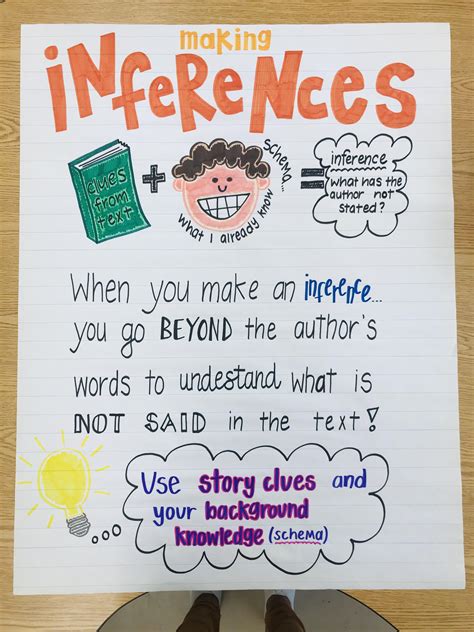 making
iNFeReNCeS
clues
from
text
+
schema...
what I already know
=
inference
what has the
author not
stated?
When you make an inference...
you go BEYOND the author's
words to undestand what is
NOT SAID in the text!
Use story clues and
your background
knowledge (schema)